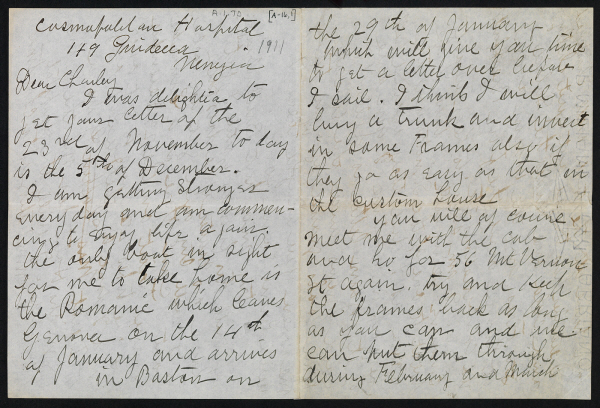 A-1-70
[A-16,1]
Cosmopolitan Hospital
149 Guidecca
1911
Venezia
Dear Charley
I was delighted to
get your letter of the
23rd of November to day
is the 5th of December.
I am getting stronger
every day and am commen-
cing to enjoy life again.
the only boat in sight
for me to take home is
the Romanic which leaves
Genova on the 14th
of January and arrives
in Boston on
the 29th of January
which will give you time
to get a letter over before
I sail. I think I will
buy a trunk and invest
in some Frames also if
they go as easy as that in
the custom house
you will of course
meet me with the cab
and ho for 56 Mt Vernon
St again. try and keep
the frames back as long
as you can and we
can put them through
during February and March